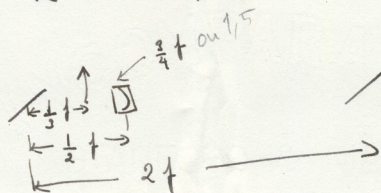 3/4 f ou 1,5
1/3 f
1/2 f
2 f